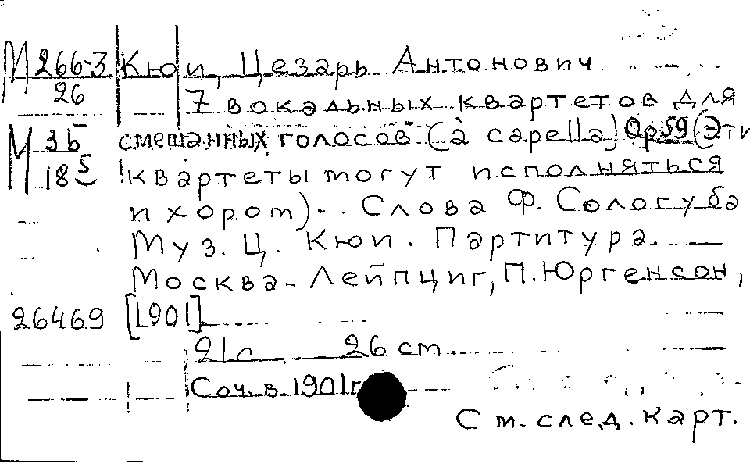 М 266-3 Кюи, Цезарь Антонович
26 7 вокальных квартетов для
М 35 смешанных голосов (à capella) Op 59 (Эти
18 5 квартеты могут исполняться
и хором). Слова Ф. Сологуба
Муз. Ц. Кюи. Партитура.
Москва - Лейпциг, П. Юргенсон,
26469 [1901]
21 с 26 cm
Соч. в 1901 г
См. след. карт.